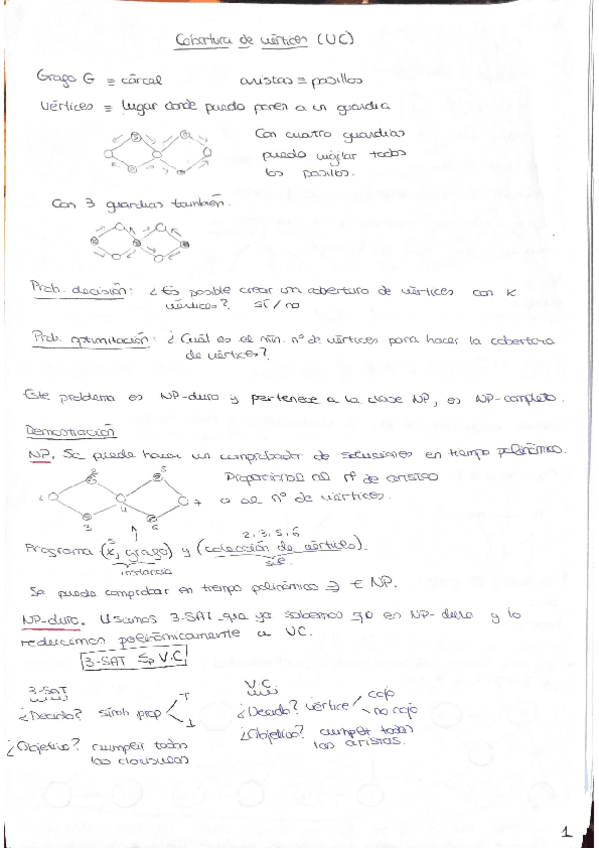 Cobertura de vértices (VC)
Grafo G ≡ cárcel    aristas ≡ pasillos
Vértices ≡ lugar donde puedo poner a un guardia
Con cuatro guardias
puedo vigilar todos
los pasillos.
Con 3 guardias también.
Prob. decisión: ¿Es posible crear un cobertura de vértices con K
vértices? SÍ / no
Prob. optimización: ¿Cuál es el mín. nº de vértices para hacer la cobertura
de vértices?
Este problema es NP-duro y pertenece a la clase NP, es NP-completo.
Demostración
NP. Se puede hacer un comprobador de soluciones en tiempo polinómico.
Proporcional al nº de aristas
o al nº de vértices.
2 5
4 7
3 6
2, 3, 5, 6
Programa (K, grafo) y (colección de vértices).
instancia
Se puede comprobar en tiempo polinómico ⇒ ∈ NP.
NP-duro. Usamos 3-SAT que ya sabemos que es NP-duro y lo
reducimos polinómicamente a VC.
3-SAT ≤p V.C
3-SAT
¿Decido? símb prop T
⊥
¿Objetivo? cumplir todas
las cláusulas
V.C
¿Decido? vértice cojo
no cojo
¿Objetivo? cumplir todas
las aristas.
1